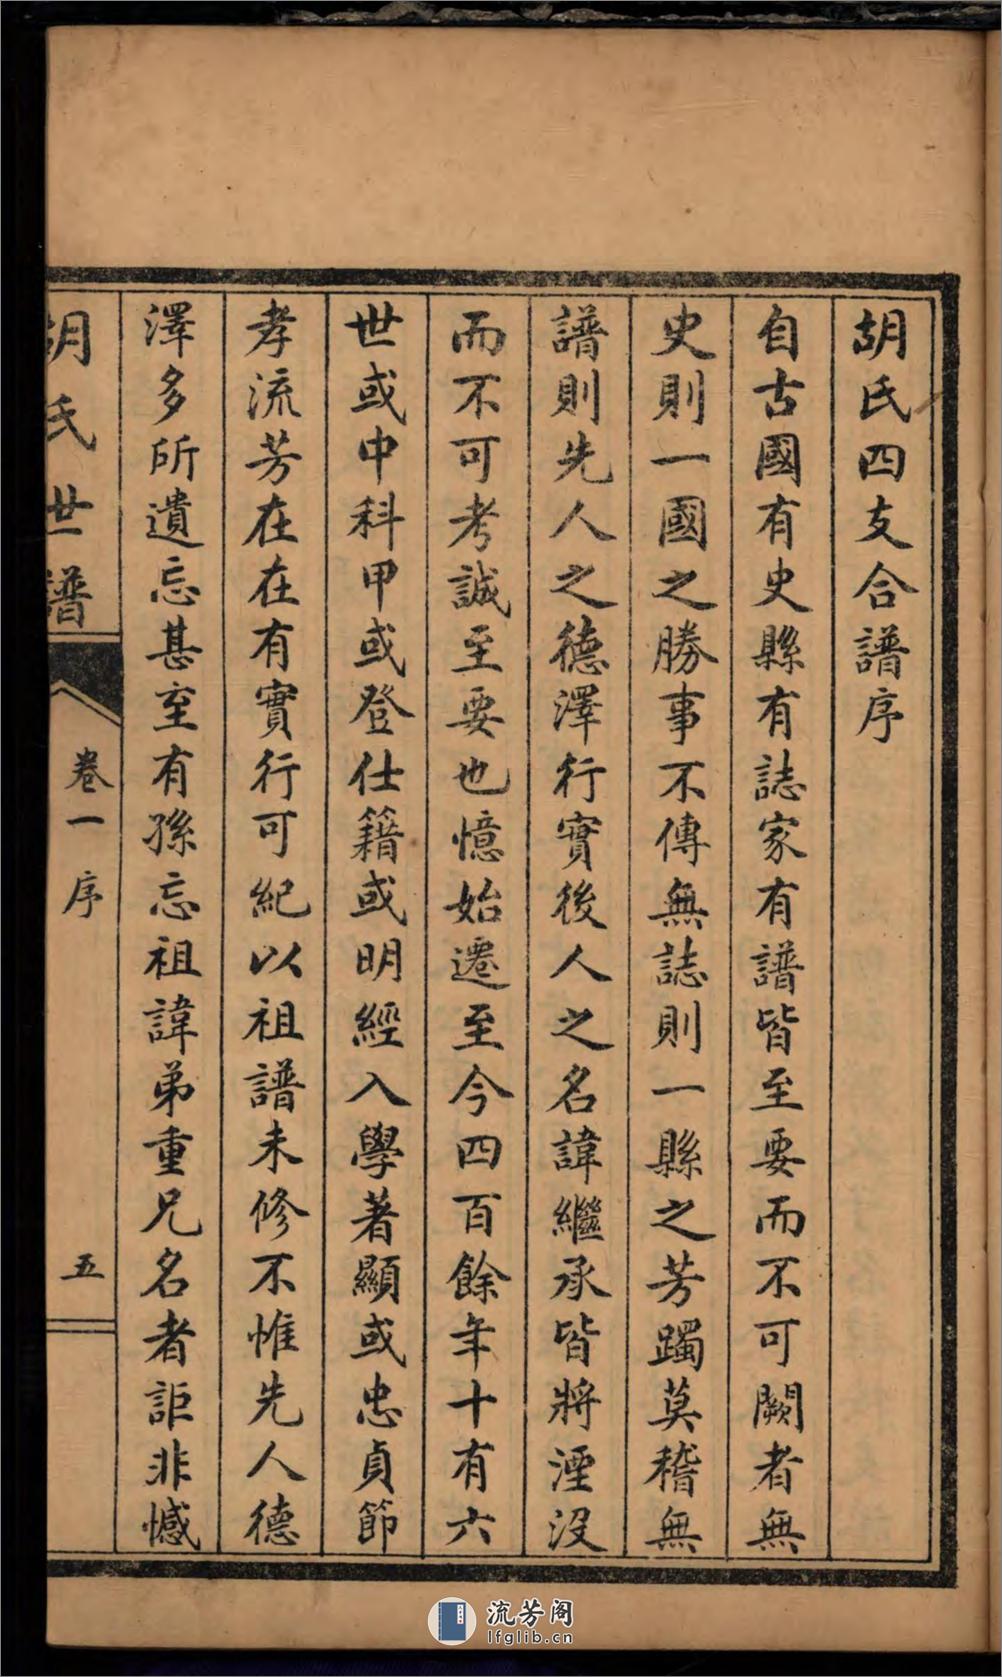 胡氏四支合譜序
自古國有史縣有誌家有譜皆至要而不可闕者無
史則一國之勝事不傳無誌則一縣之芳躅莫稽無
譜則先人之德澤行實後人之名諱繼承皆將湮沒
而不可考誠至要也憶始遷至今四百餘年十有六
世或中科甲或登仕籍或明經入學著顯或忠貞節
孝流芳在在有實行可紀以祖譜未修不惟先人德
澤多所遺忘甚至有孫忘祖諱弟重兄名者詎非憾
胡氏世譜
卷一序
五
流芳阁
lfglib.cn